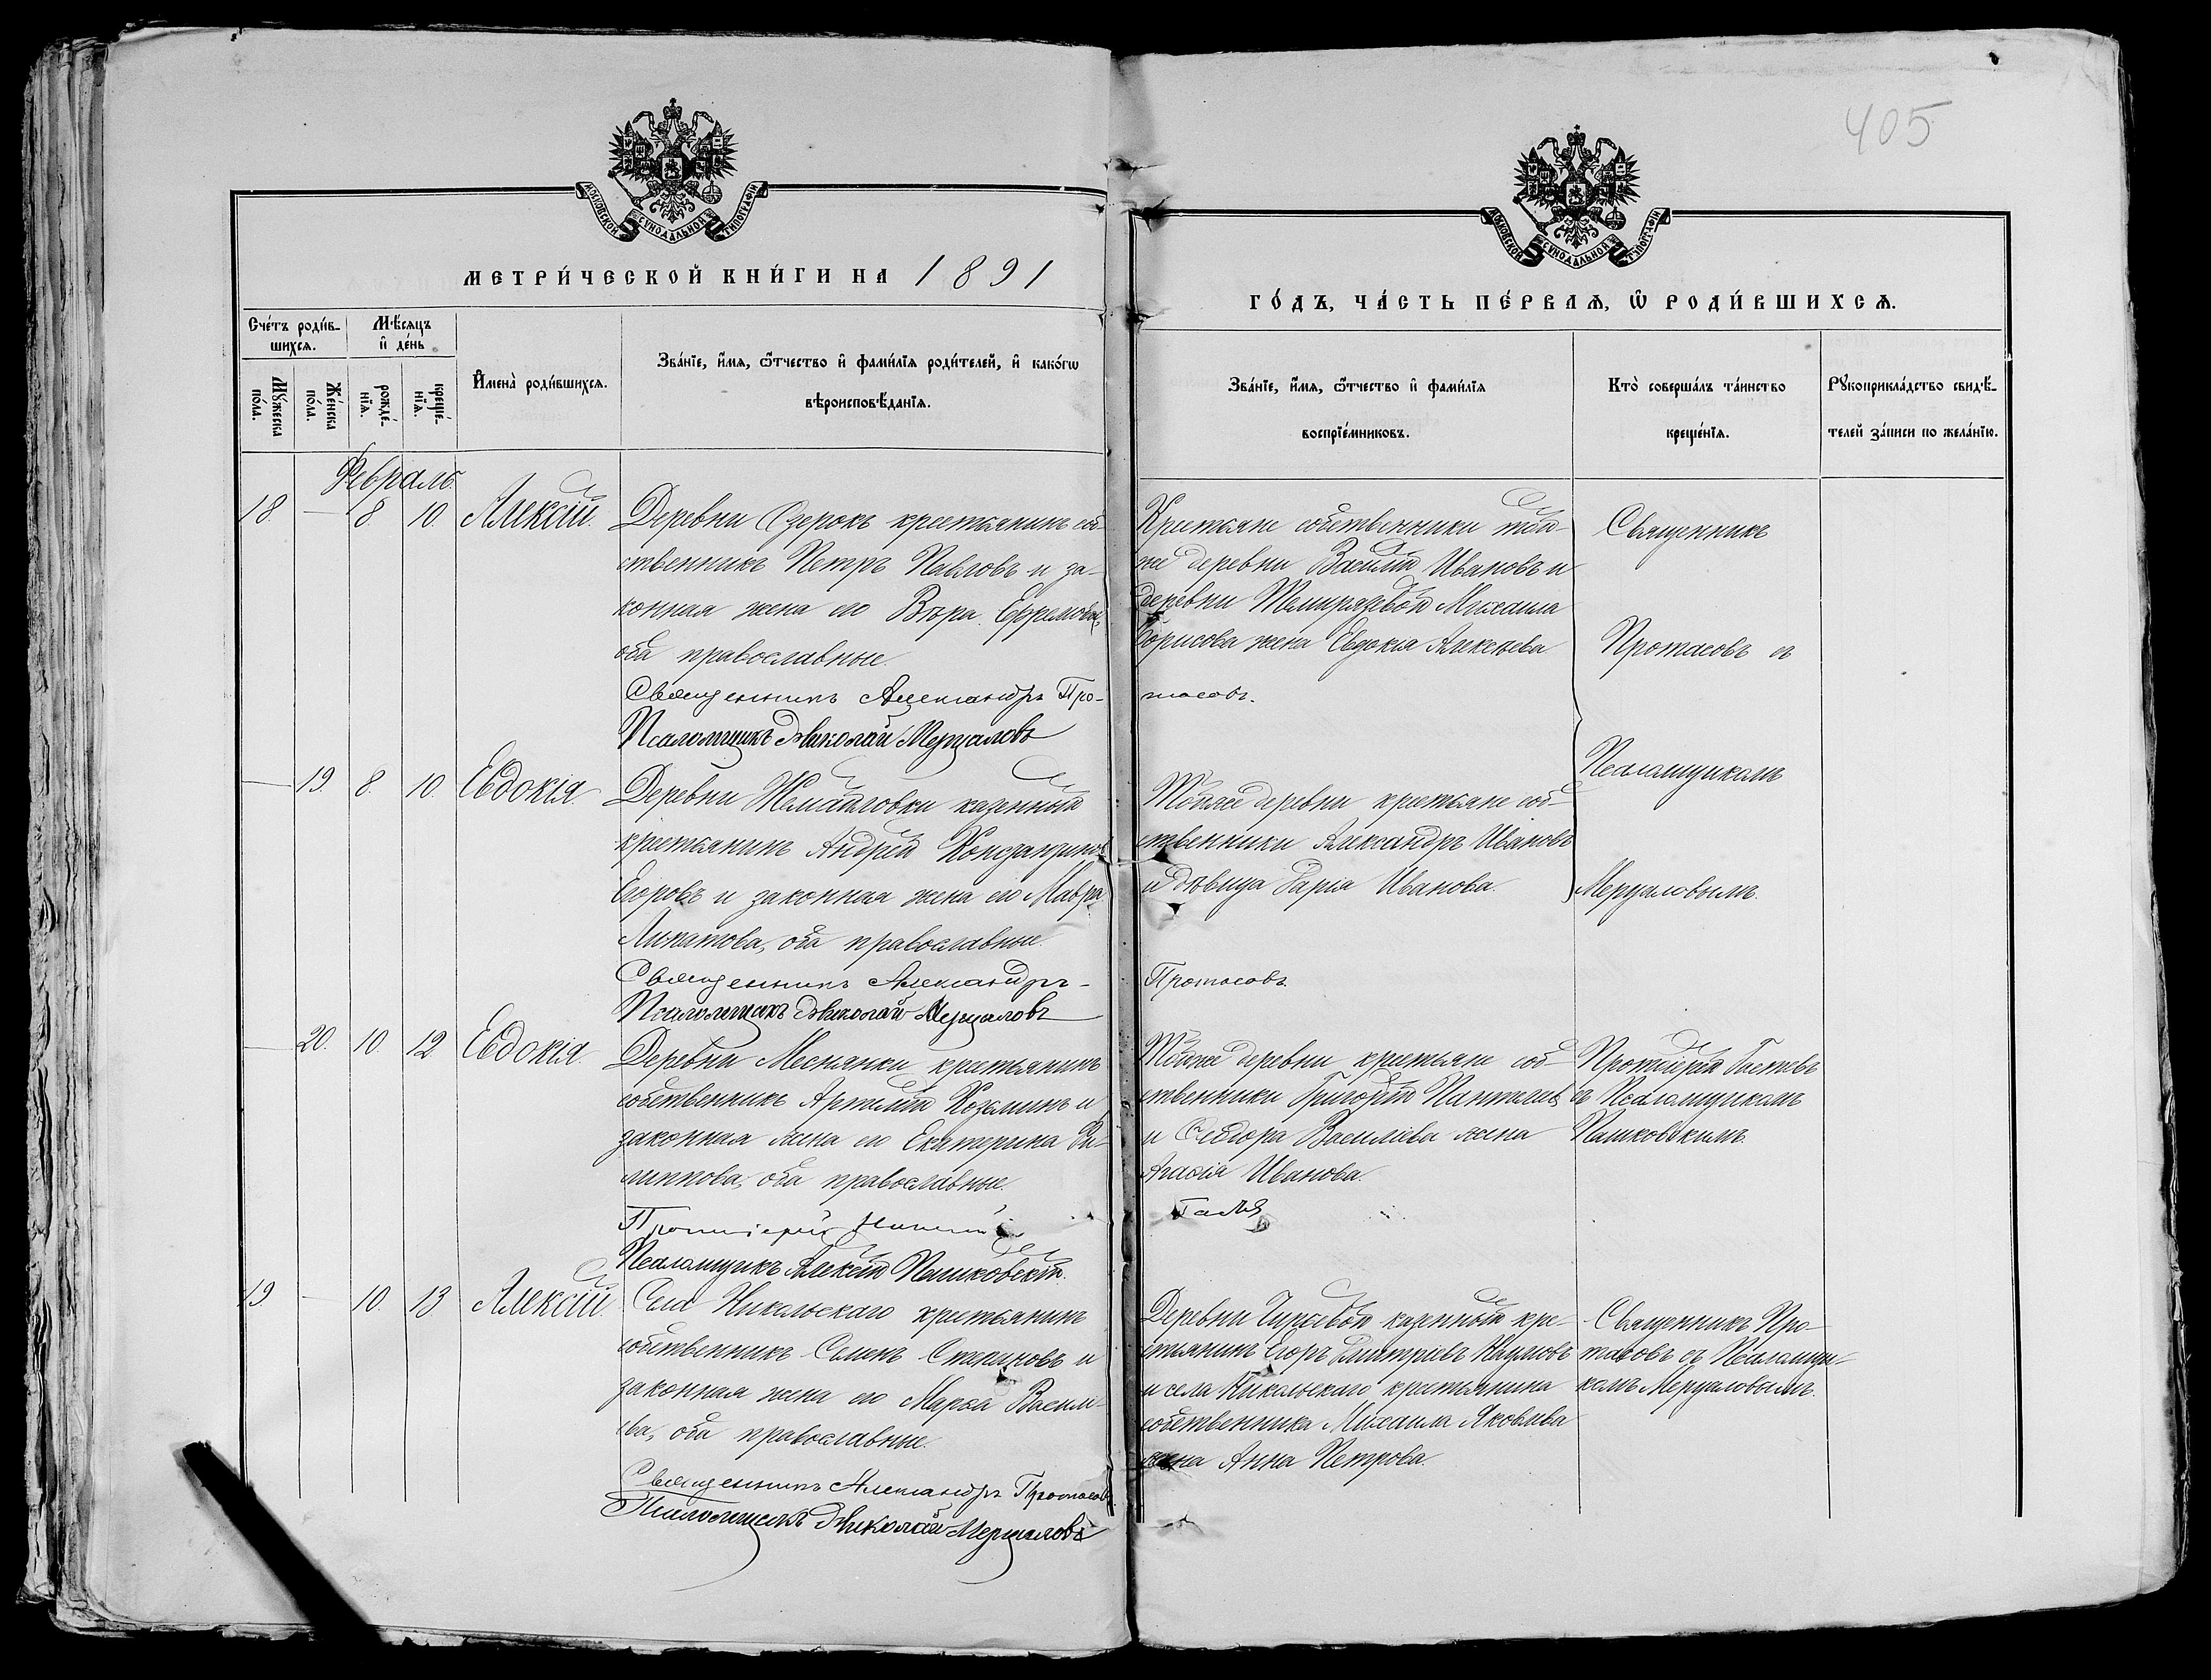 405
МОСКОВСКОЙ СУНОДАЛЬНОЙ ТИПОГРАФІИ
МОСКОВСКОЙ СУНОДАЛЬНОЙ ТИПОГРАФІИ
МЕТРИ́ЧЕСКОЙ КНИ́ГИ НА 1891
ГО́ДЪ, ЧА́СТЬ ПЕ́РВАѦ, Ѡ҆ РОДИ́ВШИХСѦ.
Сче́тъ роди́в-
шихсѧ.
Мѣ́сѧцъ
и҆ де́нь
Мꙋ́жеска
по́ла.
Же́нска
по́ла.
рожде́-
нїѧ.
креще́-
нїѧ.
И҆мена̀ роди́вшихсѧ.
Зва́нїе, и҆́мѧ, ѻ҆́тчество и҆ фами́лїѧ роди́телей, и҆ како́гѡ
вѣроисповѣ́данїѧ.
Зва́нїе, и҆́мѧ, ѻ҆́тчество и҆ фами́лїѧ
воспрїе́мниковъ.
Кто̀ соверша́лъ та́инство
креще́нїѧ.
Рꙋкоприкла́дство свидѣ́-
телей за́писи по жела́нїю.
Февраль.
18. — 8. 10. Алексій.
Деревни Озерокъ крестьянинъ соб-
ственникъ Петръ Павловъ и за-
конная жена его Вѣра Ефремова,
оба православные.
Священникъ Александръ Про-
тасовъ.
Псаломщикъ Николай Мерцаловъ
Крестьяне собственники той-
же деревни Василій Ивановъ и
деревни Михаила
Борисова жена Евдокія Алексѣева
Священникъ
Протасовъ съ
Псаломщикомъ
Мерцаловымъ.
— 19. 8. 10. Евдокія
Деревни казенный
крестьянинъ Андрей
Егоровъ и законная жена его Мавра
Липатова, оба православные.
Священникъ Александръ
Протасовъ
Псаломщикъ Николай Мерцаловъ
Тойже деревни крестьяне соб-
ственники Александръ Ивановъ
и дѣвица Дарія Иванова.
— 20. 10. 12 Евдокія
Деревни крестьянинъ
собственникъ Артемій Козьминъ и
законная жена его Екатерина Фи-
липпова, оба православные.
Протоіерей
Псаломщикъ Алексій
Тойже деревни крестьяне соб-
ственники Григорій
и Ѳедора Васильева жена
Агафія Иванова.
Протоіерей
съ Псаломщикомъ
19. — 10. 13 Алексій
Села Никольскаго крестьянинъ
собственникъ Семенъ Степановъ и
законная жена его Марѳа Василь-
ева, оба православные.
Священникъ Александръ Протасовъ
Псаломщикъ Николай Мерцаловъ
Деревни казенный кре-
стьянинъ Егоръ Дмитріевъ Наумовъ
и села Никольскаго крестьянина
собственника Михаила Яковлева
жена Анна Петрова.
Священникъ Про-
тасовъ съ Псаломщи-
комъ Мерцаловымъ.